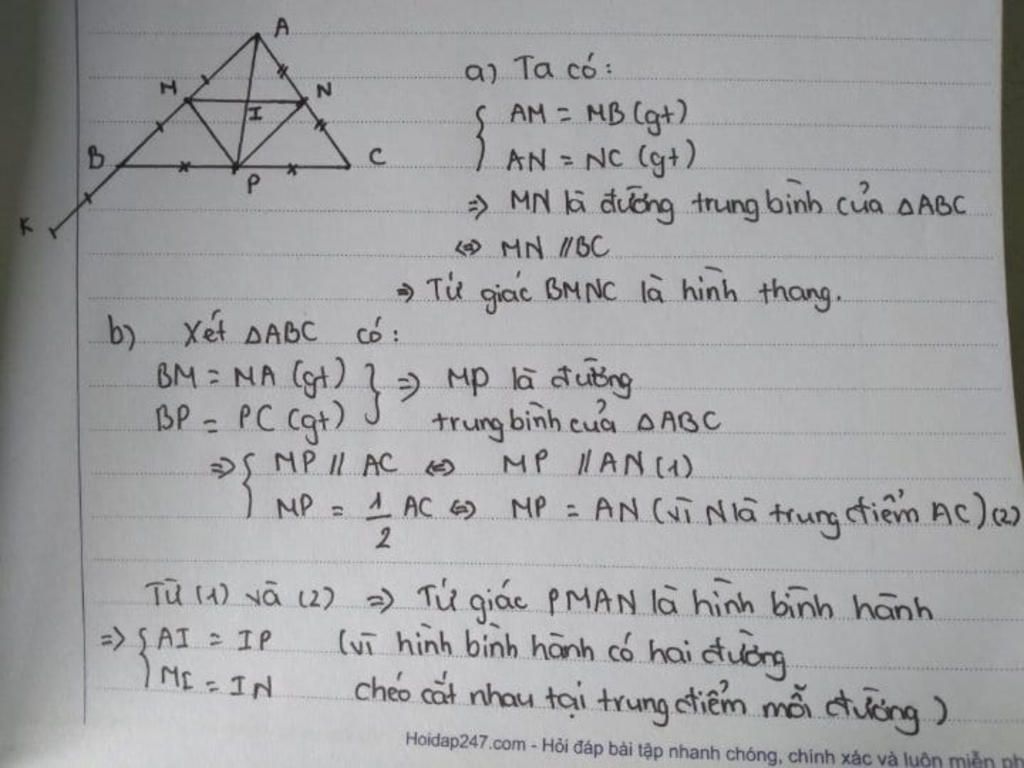 A
M
N
I
B
P
C
K
a) Ta có:
AM = MB (gt)
AN = NC (gt)
⇒ MN là đường trung bình của ΔABC
⇔ MN // BC
⇒ Tứ giác BMNC là hình thang.
b) Xét ΔABC có:
BM = MA (gt) } ⇒ MP là đường
BP = PC (gt) trung bình của ΔABC
⇒ { MP // AC ⇔ MP // AN (1)
MP = 1/2 AC ⇔ MP = AN (vì N là trung điểm AC) (2)
Từ (1) và (2) ⇒ Tứ giác PMAN là hình bình hành
⇒ { AI = IP (vì hình bình hành có hai đường
MI = IN chéo cắt nhau tại trung điểm mỗi đường)
Hoidap247.com - Hỏi đáp bài tập nhanh chóng, chính xác và luôn miễn ph